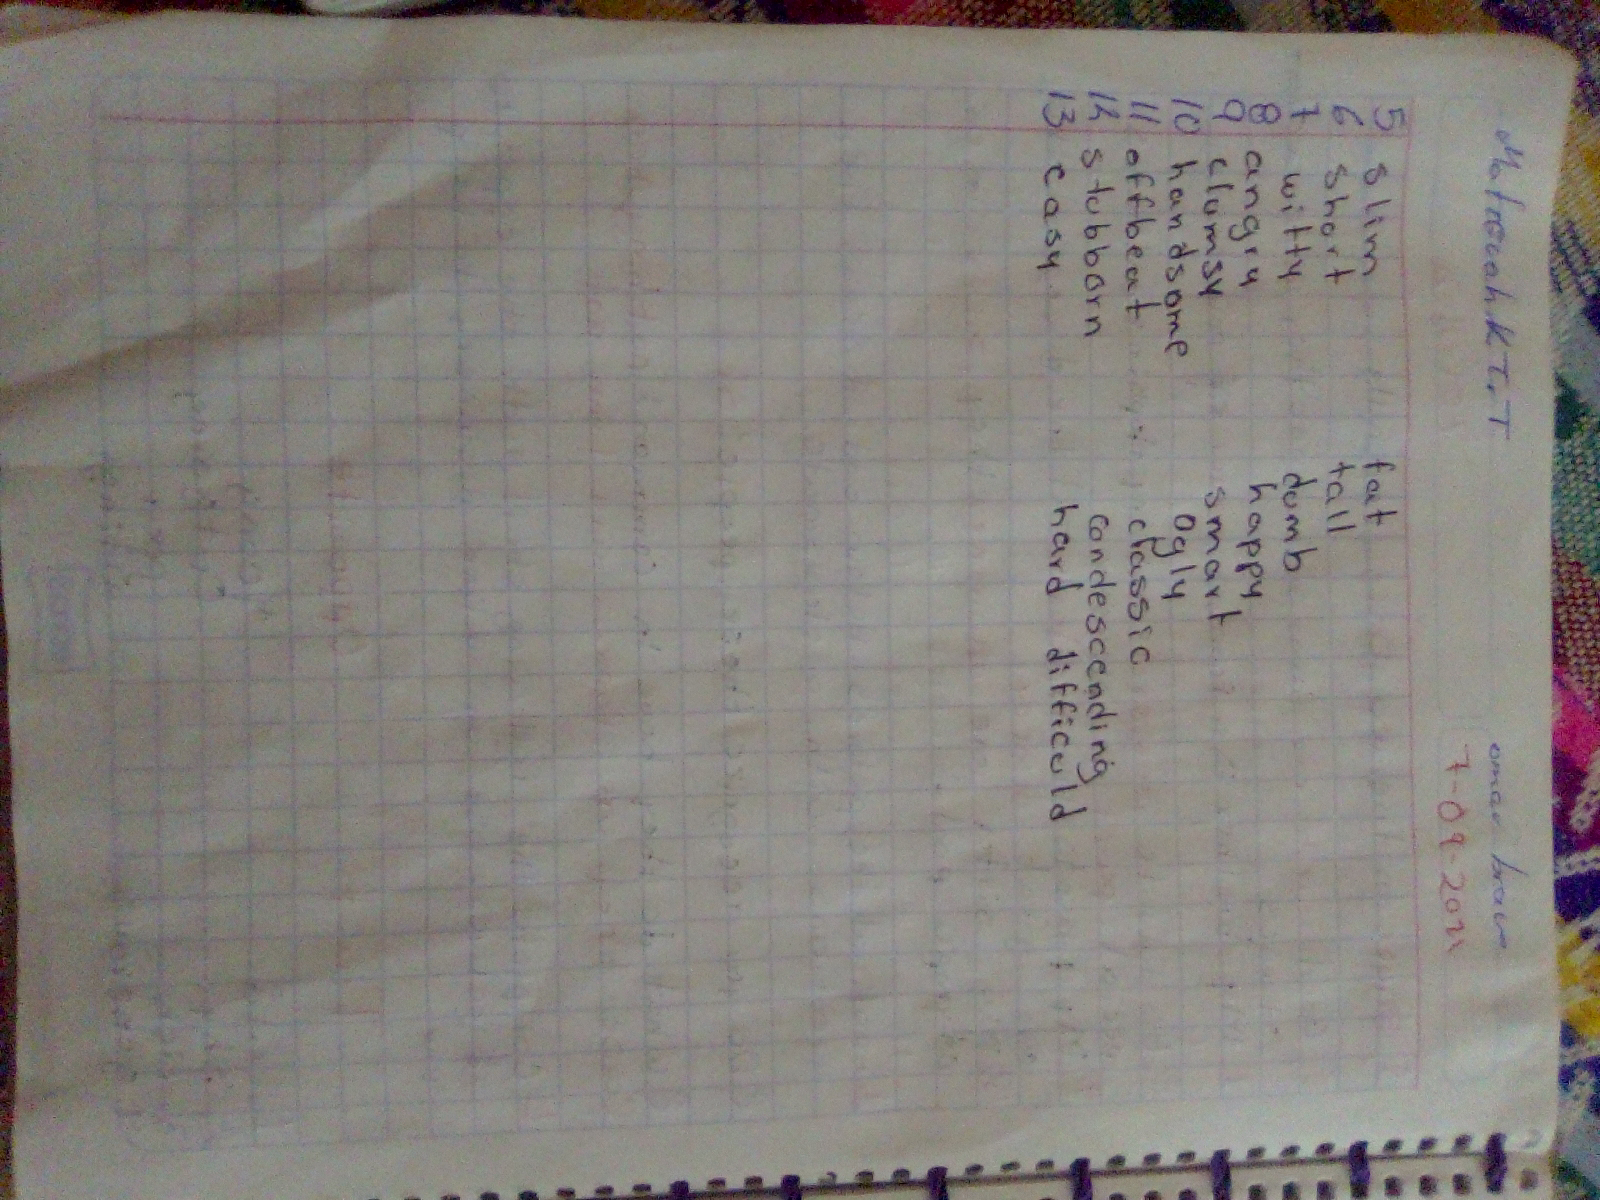 omar brawn
7-09-2021
5 slim fat
6 short tall
7 witty dumb
8 angry happy
9 clumsy smart
10 handsome ogly
11 offbeat classic
12 stubborn condescending
13 easy hard difficuld